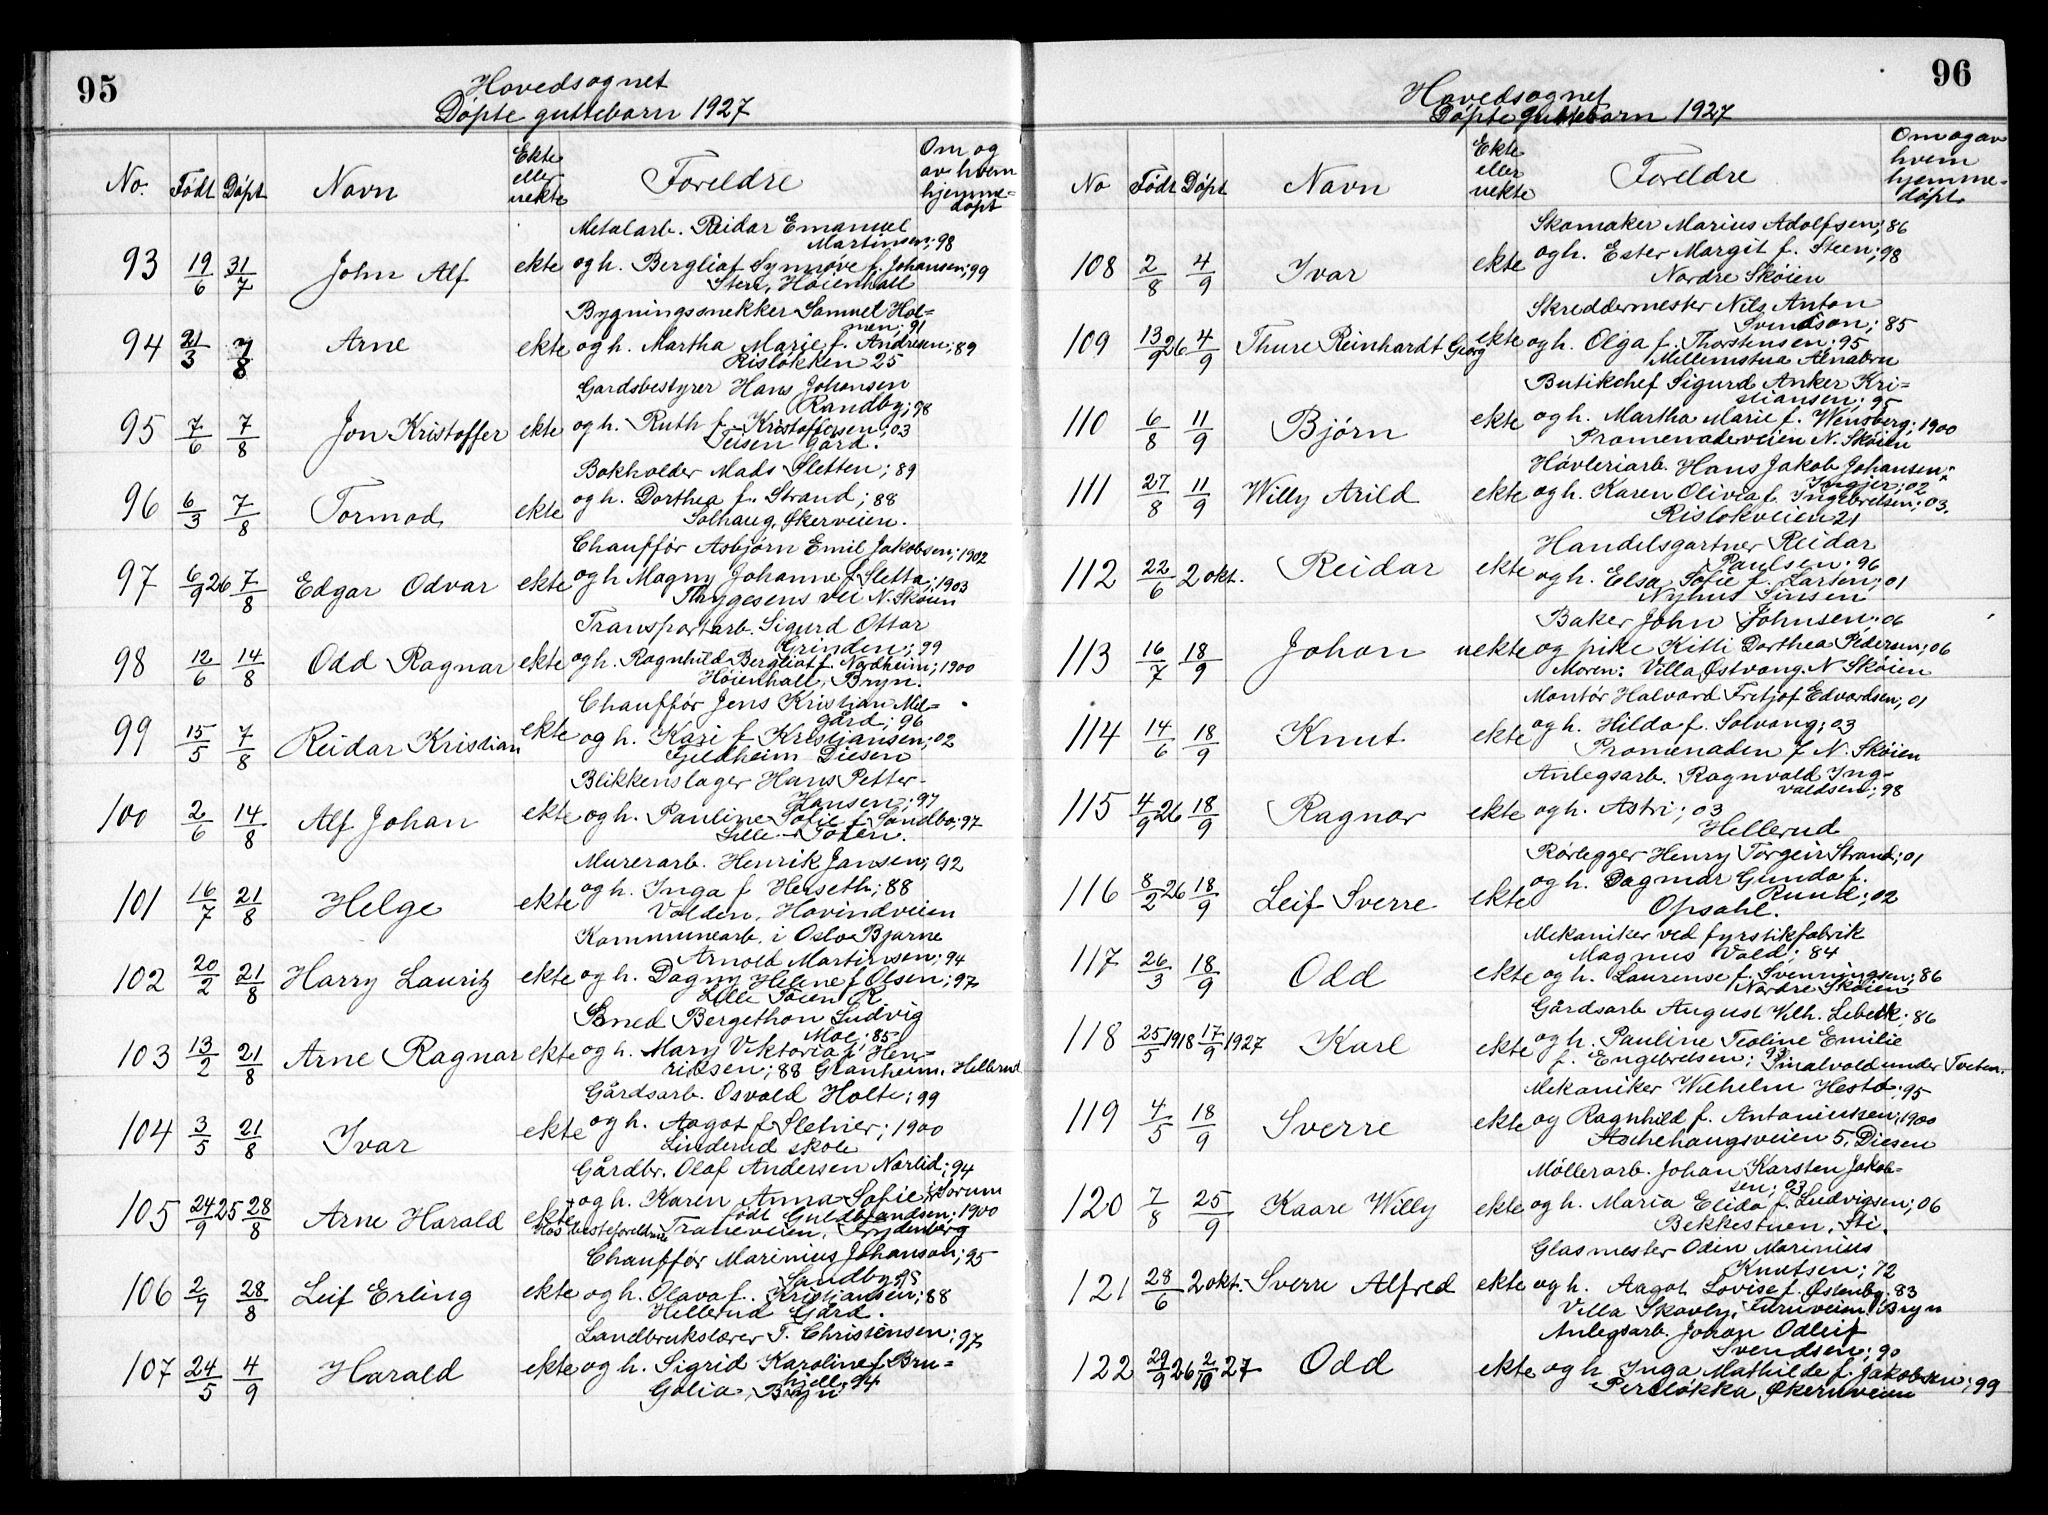 95
Hovedsognet
Døpte guttebarn 1927
No. Født Døpt Navn Ekte eller uekte Foreldre Om og av hvem hjemmedøpt
Metalarb. Reidar Emanuel
Martinsen; 98
93 19/6 31/7 John Alf ekte og h. Bergliot Synnøve f. Johansen; 99
Høienhall
Bygningssnekker Samuel Hol=
men; 91
94 21/3 7/8 Arne ekte og h. Martha Marie f. Andresen; 89
Risløkken 25
Gardsbestyrer Hans Johansen
Randby; 98
95 7/6 7/8 Jon Kristoffer ekte og h. Ruth f. Kristoffersen; 03
Teisen Gård.
Bokholder Mads Sletten; 89
96 6/3 7/8 Tormod ekte og h. Dorthea f. Strand; 88
Solhaug, Økerveien.
Chauffør Asbjørn Emil Jakobsen; 1902
97 6/9 26 7/8 Edgar Odvar ekte og h Magny Johanne f. Sletta; 1903
Thygesens vei N. Skøien
Transportarb. Sigurd Ottar
Grinden; 99
98 12/6 14/8 Odd Ragnar ekte og h. Ragnhild Bergliot f. Nordheim; 1900
Høienhall, Bryn.
Chauffør Jens Kristian Mel=
gård; 96
99 15/5 7/8 Reidar Kristian ekte og h. Kari f. Kristiansen; 02
Fjeldheim Disen
Blikkenslager Hans Petter
Hansen; 97
100 2/6 14/8 Alf Johan ekte og h. Pauline Sofie f. Sandbo; 97
Lille-Tøien.
Murerarb. Henrik Jansen; 92
101 16/7 21/8 Helge ekte og h. Inga f. Herseth; 88
Volden, Hovindveien
Kommunearb. i Oslo Bjarne
Arnold Martinsen; 94
102 20/2 21/8 Harry Lauritz ekte og h. Dagny Helene f. Olsen; 97
Lille Tøien
Smed Bergethon Ludvig
Moe; 85
103 13/2 21/8 Arne Ragnar ekte og h. Mary Viktoria f. Hen=
riksen; 88 Granheim, Hellerud
Gårdsarb. Osvald Holte; 99
104 3/5 21/8 Ivar ekte og h. Aagot f. Sletner; 1900
Linderud skole
Gårdbr. Olaf Andersen Norlid; 94
105 24/9 25 28/8 Arne Harald ekte og h. Karen Anna Sofie i Sørum
født Guldbrandsen; 1900
Hos besteforeldrene Traneveien, Frydenberg
Chauffør Marinius Johanson; 95
Sandby
106 2/9 28/8 Leif Erling ekte og h. Olava f. Kristiansen; 88
Hellerud Gård.
Landbrukslærer T. Christensen; 97
107 24/5 4/9 Harald ekte og h. Sigrid Karoline f. Bru=
hjell; 94
Golia, Bryn
96
Hovedsognet
Døpte guttebarn 1927
No Født Døpt Navn Ekte eller uekte Foreldre Om og av hvem hjemmedøpt
Skomaker Marius Adolfsen; 86
108 2/8 4/9 Ivar ekte og h. Ester Margit f. Steen; 98
Nordre Skøien
Skreddermester Nils Anton
Svendson; 85
109 13/9 26 4/9 Thure Reinhardt Georg ekte og h. Olga f. Thorstensen; 95
Mellemstua Alnabru
Butikchef Sigurd Anker Kri=
stiansen; 95
110 6/8 11/9 Bjørn ekte og h. Martha Marie f. Wensberg; 1900
Promenadeveien N. Skøien
Høvleriarb. Hans Jakob Johansen
Ingjer; 02
111 27/8 11/9 Willy Arild ekte og h. Karen Olivia f. Ingebretsen; 03.
Risløkveien 21
Handelsgartner Reidar
Paulsen; 96
112 22/6 2 okt. Reidar ekte og h. Elsa Sofie f. Larsen; 01
Nyhus Sinsen
Baker John Johnsen; 06
113 16/7 18/9 Johan uekte og pike Kitti Dorthea Pedersen; 06
Moren: Villa Østvang. N. Skøien
Montør Halvard Fritjof Edvardsen; 01
114 14/6 18/9 Knut ekte og h. Hilda f. Solvang; 03
Promenaden 7 N. Skøien
Anlegsarb. Ragnvald Ing=
valdsen; 98
115 4/9 26 18/9 Ragnar ekte og h. Astri; 03
Hellerud
Rørlegger Henry Torgeir Strand; 01
116 8/2 26 18/9 Leif Sverre ekte og h. Dagmar Gunda f.
Rund; 02
Opsahl.
Mekaniker ved fyrstikfabrik
Magnus Vold; 84
117 26/3 18/9 Odd ekte og h. Laurense f. Svenningsen; 86
Nordre Skøien
Gårdsarb August Vilh. Lebeck; 86
118 25/5 1918 17/9 1927 Karl ekte og h. Pauline Teoline Emilie
f. Engebretsen; 93 Smalvold under Tveten.
Mekaniker Wilhelm Hestø; 95
119 4/5 18/9 Sverre ekte og Ragnhild f. Antoniussen; 1900
Aschehaugsveien 5, Disen
Møllerarb. Johan Karsten Jakob=
sen; 03
120 7/8 25/9 Kaare Willy ekte og h. Maria Elida f. Ludvigsen; 06
Bekkestuen,
Glasmester Odin Marinius
Knutsen; 72
121 28/6 2 okt. Sverre Alfred ekte og h. Aagot Lovise f. Østenby; 83
Villa Skovly, Furuveien, Bryn
Anlegsarb. Johan Odleif
Svendsen; 90
122 29/9 26 2/10 27 Odd ekte og h Inga Mathilde f. Jakobsen; 99
Persløkka, Økernveien